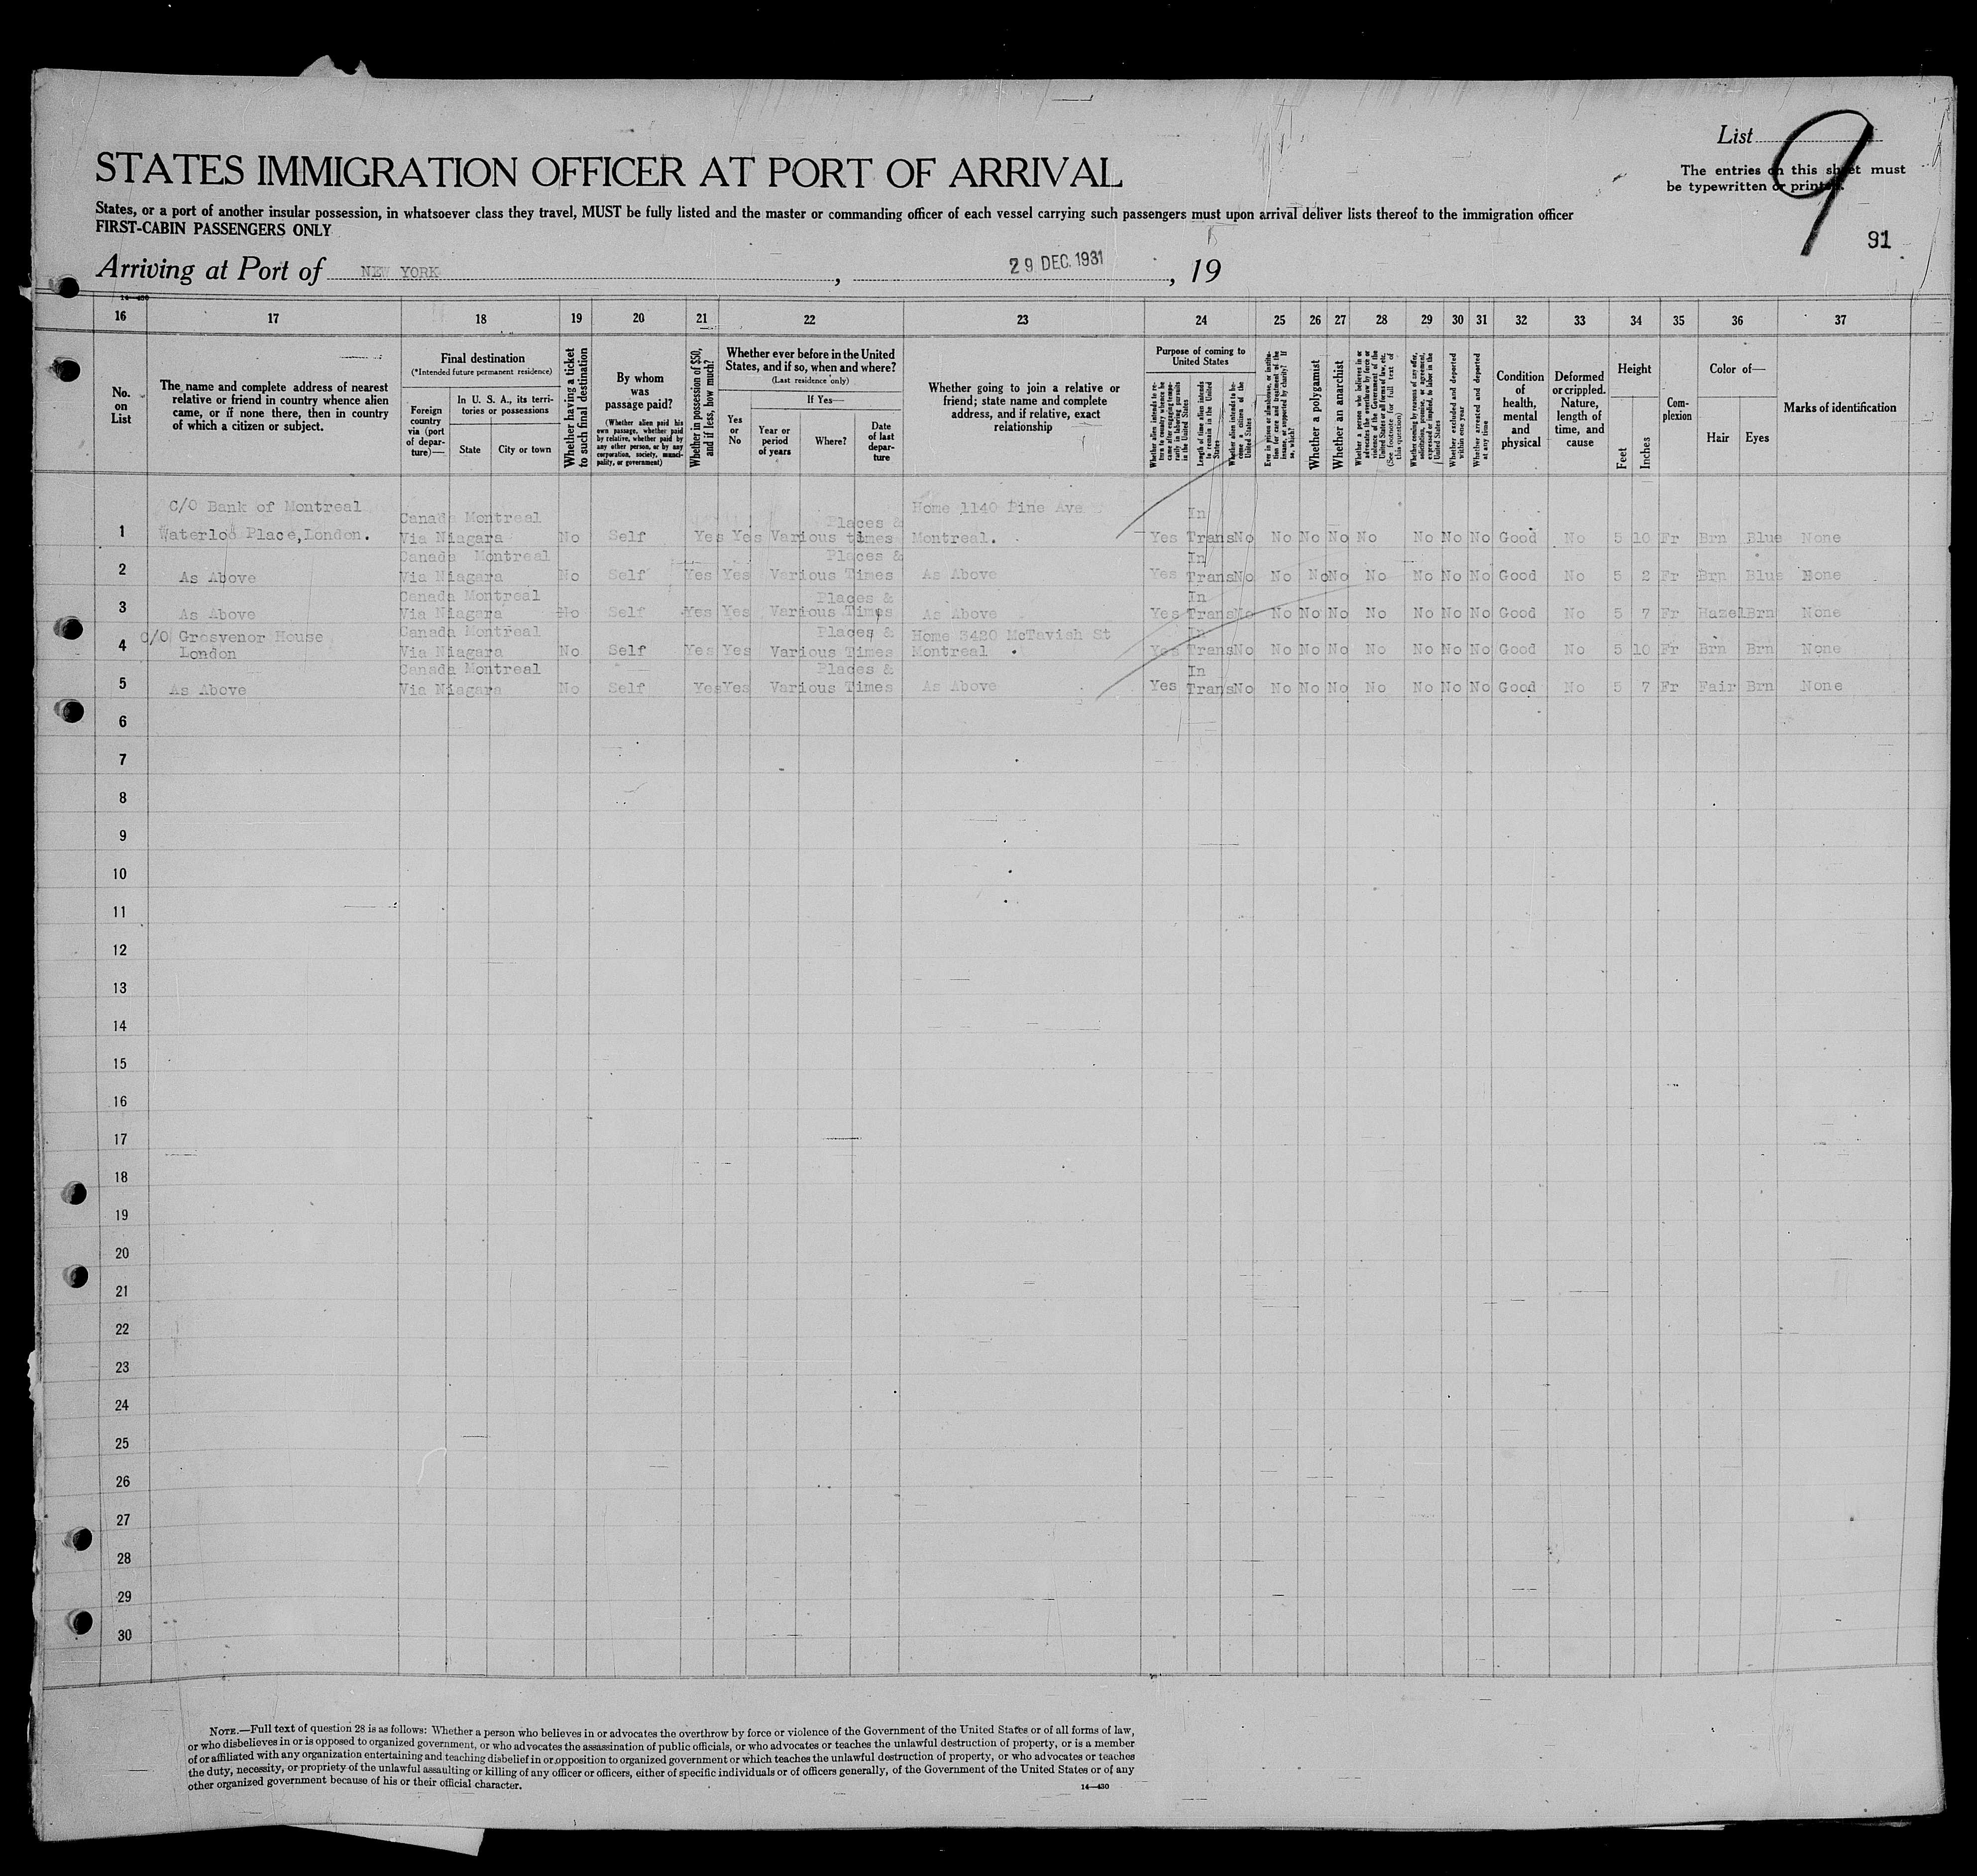 List 9
The entries on this sheet must
be typewritten or printed.
91
STATES IMMIGRATION OFFICER AT PORT OF ARRIVAL
States, or a port of another insular possession, in whatsoever class they travel, MUST be fully listed and the master or commanding officer of each vessel carrying such passengers must upon arrival deliver lists thereof to the immigration officer
FIRST-CABIN PASSENGERS ONLY
Arriving at Port of NEW YORK, 29 DEC. 1931, 19
14—430
16 17 18 19 20 21 22 23 24 25 26 27 28 29 30 31 32 33 34 35 36 37
No.
on
List
The name and complete address of nearest
relative or friend in country whence alien
came, or if none there, then in country
of which a citizen or subject.
Final destination
(*Intended future permanent residence)
Foreign
country
via (port
of depar-
ture)—
In U. S. A., its terri-
tories or possessions
State
City or town
Whether having a ticket
to such final destination
By whom
was
passage paid?
(Whether alien paid his
own passage, whether paid
by relative, whether paid by
any other person, or by any
corporation, society, munici-
pality, or government)
Whether in possession of $50,
and if less, how much?
Whether ever before in the United
States, and if so, when and where?
(Last residence only)
Yes
or
No
If Yes—
Year or
period
of years
Where?
Date
of last
depar-
ture
Whether going to join a relative or
friend; state name and complete
address, and if relative, exact
relationship
Purpose of coming to
United States
Whether alien intends to re-
turn to country whence he
came after engaging tempo-
rarily in laboring pursuits
in the United States
Length of time alien intends
to remain in the United
States
Whether alien intends to be-
come a citizen of the
United States
Ever in prison or almshouse, or institu-
tion for care and treatment of the
insane, or supported by charity? If
so, which?
Whether a polygamist
Whether an anarchist
Whether a person who believes in or
advocates the overthrow by force or
violence of the Government of the
United States or all forms of law, etc.
(See footnote for full text of
this question)
Whether coming by reasons of any offer,
solicitation, promise, or agreement,
expressed or implied, to labor in the
United States
Whether excluded and deported
within one year
Whether arrested and deported
at any time
Condition
of
health,
mental
and
physical
Deformed
or crippled.
Nature,
length of
time, and
cause
Height
Feet
Inches
Com-
plexion
Color of—
Hair
Eyes
Marks of identification
C/O Bank of Montreal Canada Montreal Places & Home 1140 Pine Ave In
1 Waterloo Place,London. Via Niagara No Self Yes Yes Various times Montreal. Yes Trans No No No No No No No No Good No 5 10 Fr Brn Blue None
Canada Montreal Places & In
2 As Above Via Niagara No Self Yes Yes Various Times As Above Yes Trans No No No No No No No No Good No 5 2 Fr Brn Blue None
Canada Montreal Places & In
3 As Above Via Niagara No Self Yes Yes Various Times As Above Yes Trans No No No No No No No No Good No 5 7 Fr Hazel Brn None
C/O Grosvenor House Canada Montreal Places & Home 3420 McTavish St In
4 London Via Niagara No Self Yes Yes Various Times Montreal Yes Trans No No No No No No No No Good No 5 10 Fr Brn Brn None
Canada Montreal Places & In
5 As Above Via Niagara No Self Yes Yes Various Times As Above Yes Trans No No No No No No No No Good No 5 7 Fr Fair Brn None
6
7
8
9
10
11
12
13
14
15
16
17
18
19
20
21
22
23
24
25
26
27
28
29
30
NOTE.—Full text of question 28 is as follows: Whether a person who believes in or advocates the overthrow by force or violence of the Government of the United States or of all forms of law,
or who disbelieves in or is opposed to organized government, or who advocates the assassination of public officials, or who advocates or teaches the unlawful destruction of property, or is a member
of or affiliated with any organization entertaining and teaching disbelief in or opposition to organized government or which teaches the unlawful destruction of property, or who advocates or teaches
the duty, necessity, or propriety of the unlawful assaulting or killing of any officer or officers, either of specific individuals or of officers generally, of the Government of the United States or of any
other organized government because of his or their official character.
14—430